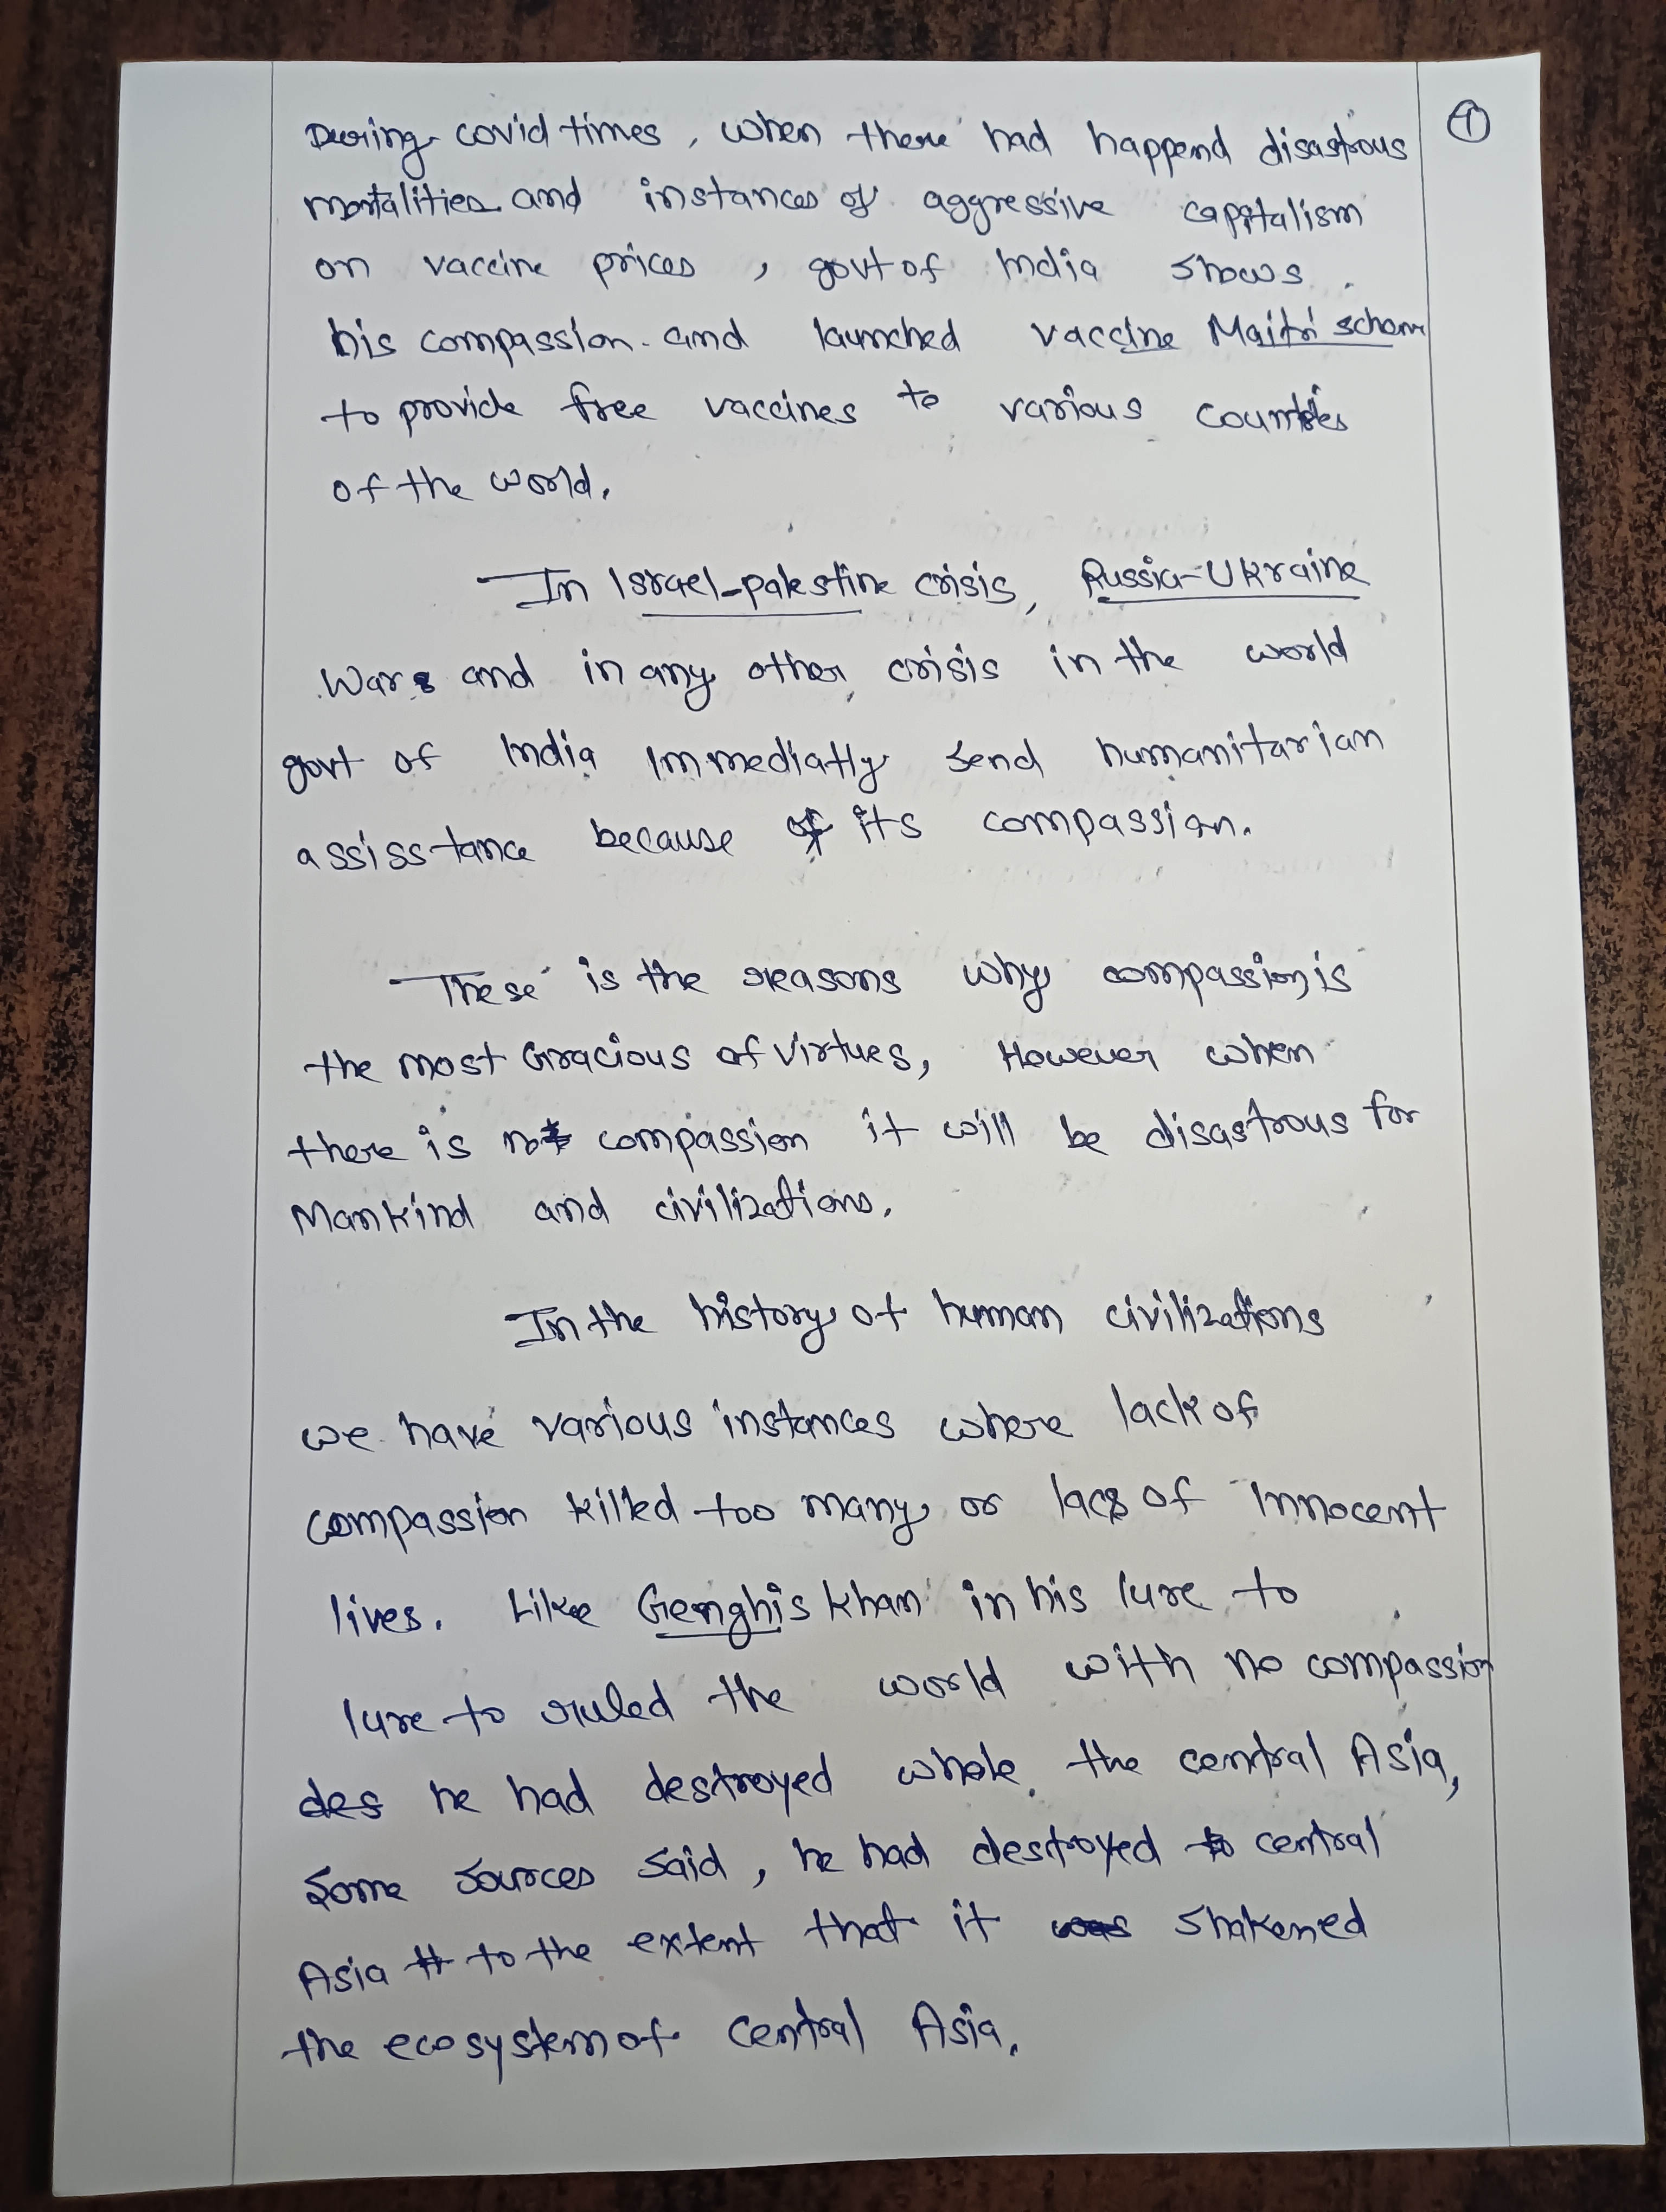 During covid times, when there had happend disastrous
①
mortalities and instances of aggressive capitalism
on vaccine prices, govt of India shows
his compassion and launched vaccine Maitri schem
to provide free vaccines to various countries
of the world.
In Israel-palestine crisis, Russia-Ukraine
war and in any other crisis in the world
govt of India immediatly send humanitarian
assisstance because of its compassion.
These is the reasons why compassion is
the most Gracious of virtues, However when
there is no compassion it will be disastrous for
Mankind and civilizations.
In the history of human civilizations
we have various instances where lack of
compassion killed too many or lacs of innocent
lives. Like Genghis khan in his lure to
lure to ruled the world with no compassion
des he had destroyed whole the central Asia,
some sources said, he had destroyed central
Asia to the extent that it shakened
the ecosystem of central Asia.